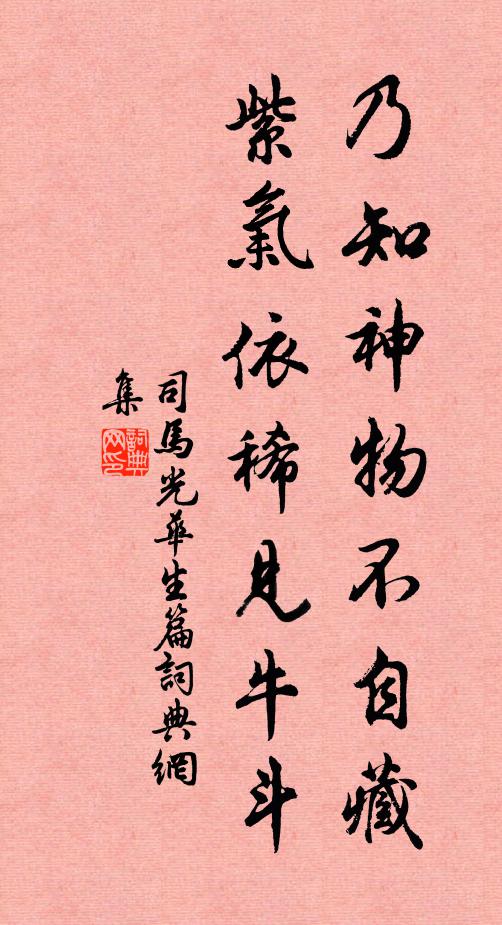 乃知神物不自藏
紫氣依稀見牛斗
司馬光華生篇詞典網
集
詞典
网印